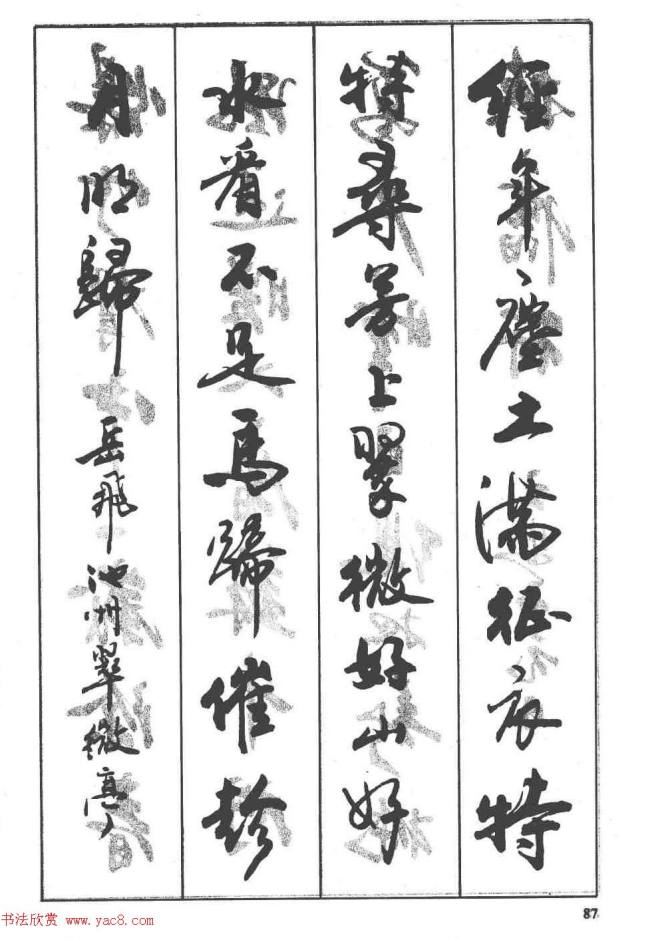 經年塵土滿征衣特
特尋芳上翠微好山好
水看不足馬蹄催趁
月明歸 岳飛池州翠微亭
87
书法欣赏 www.yac8.com